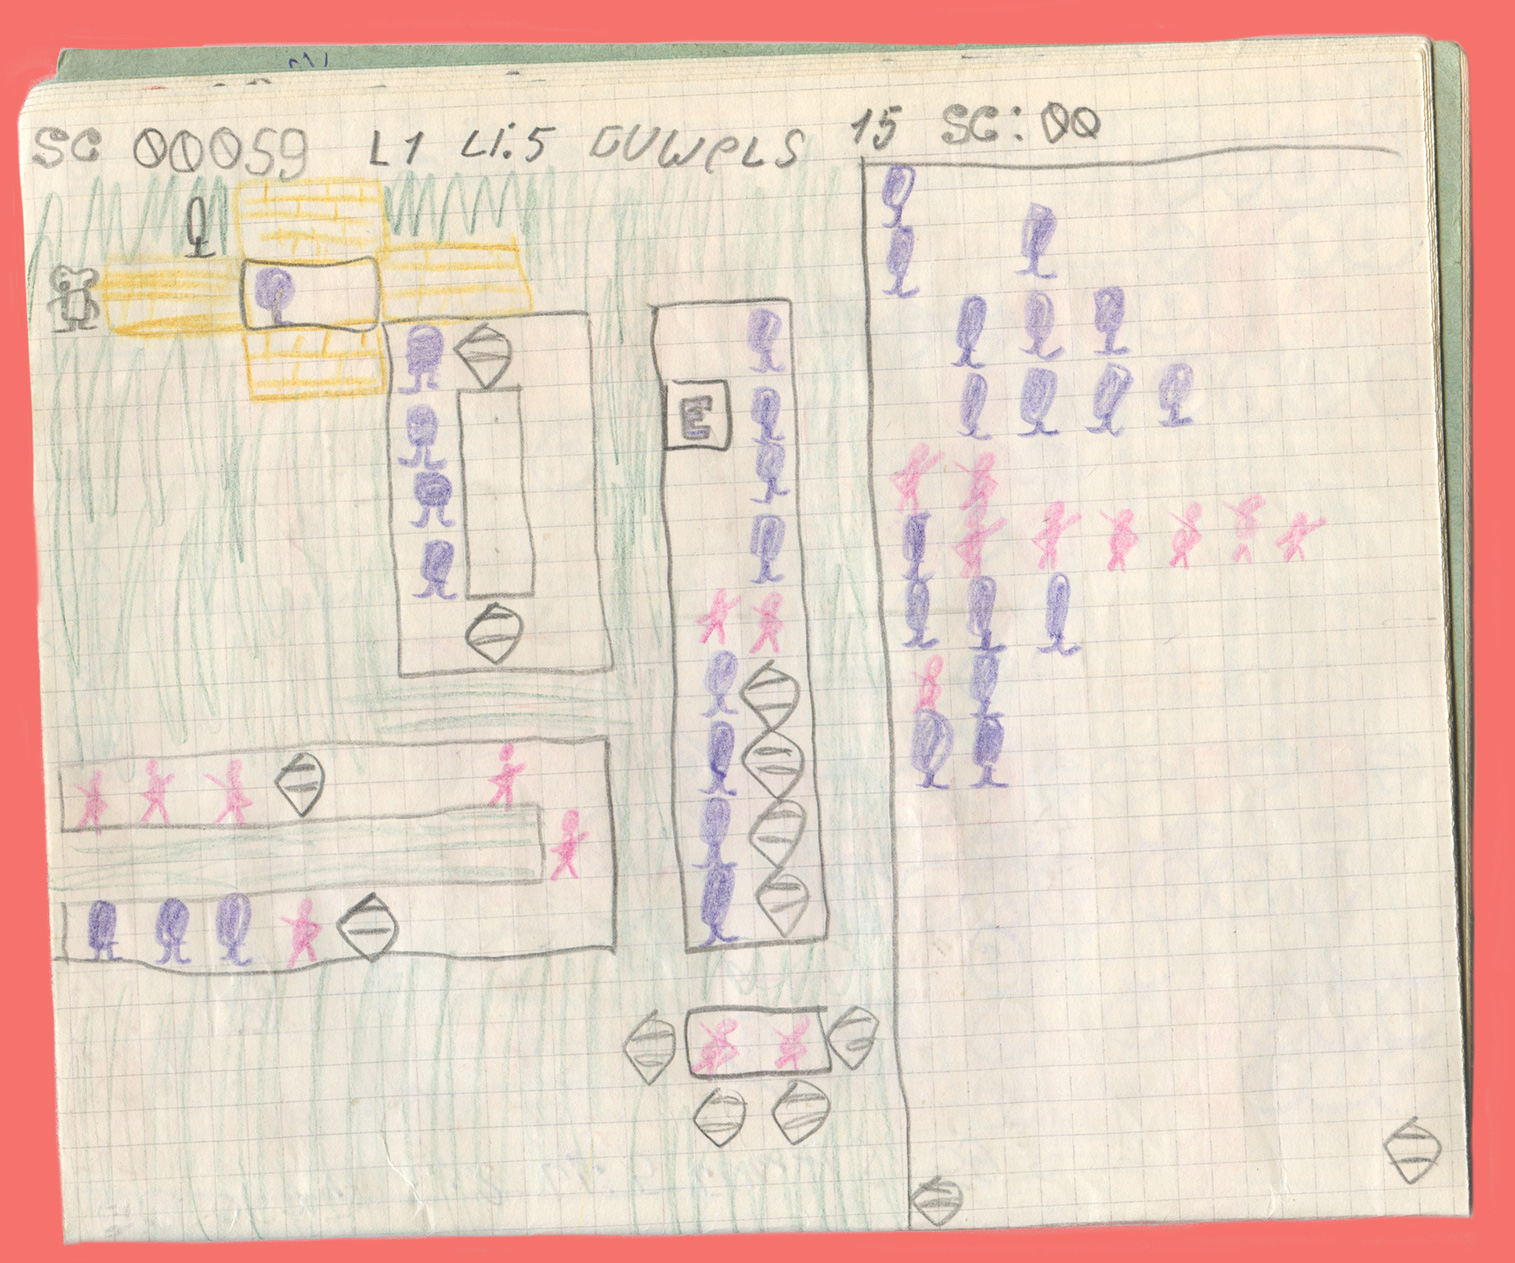 SC 00059 L1 Li.5 GUWELS 15 SC: 00
E